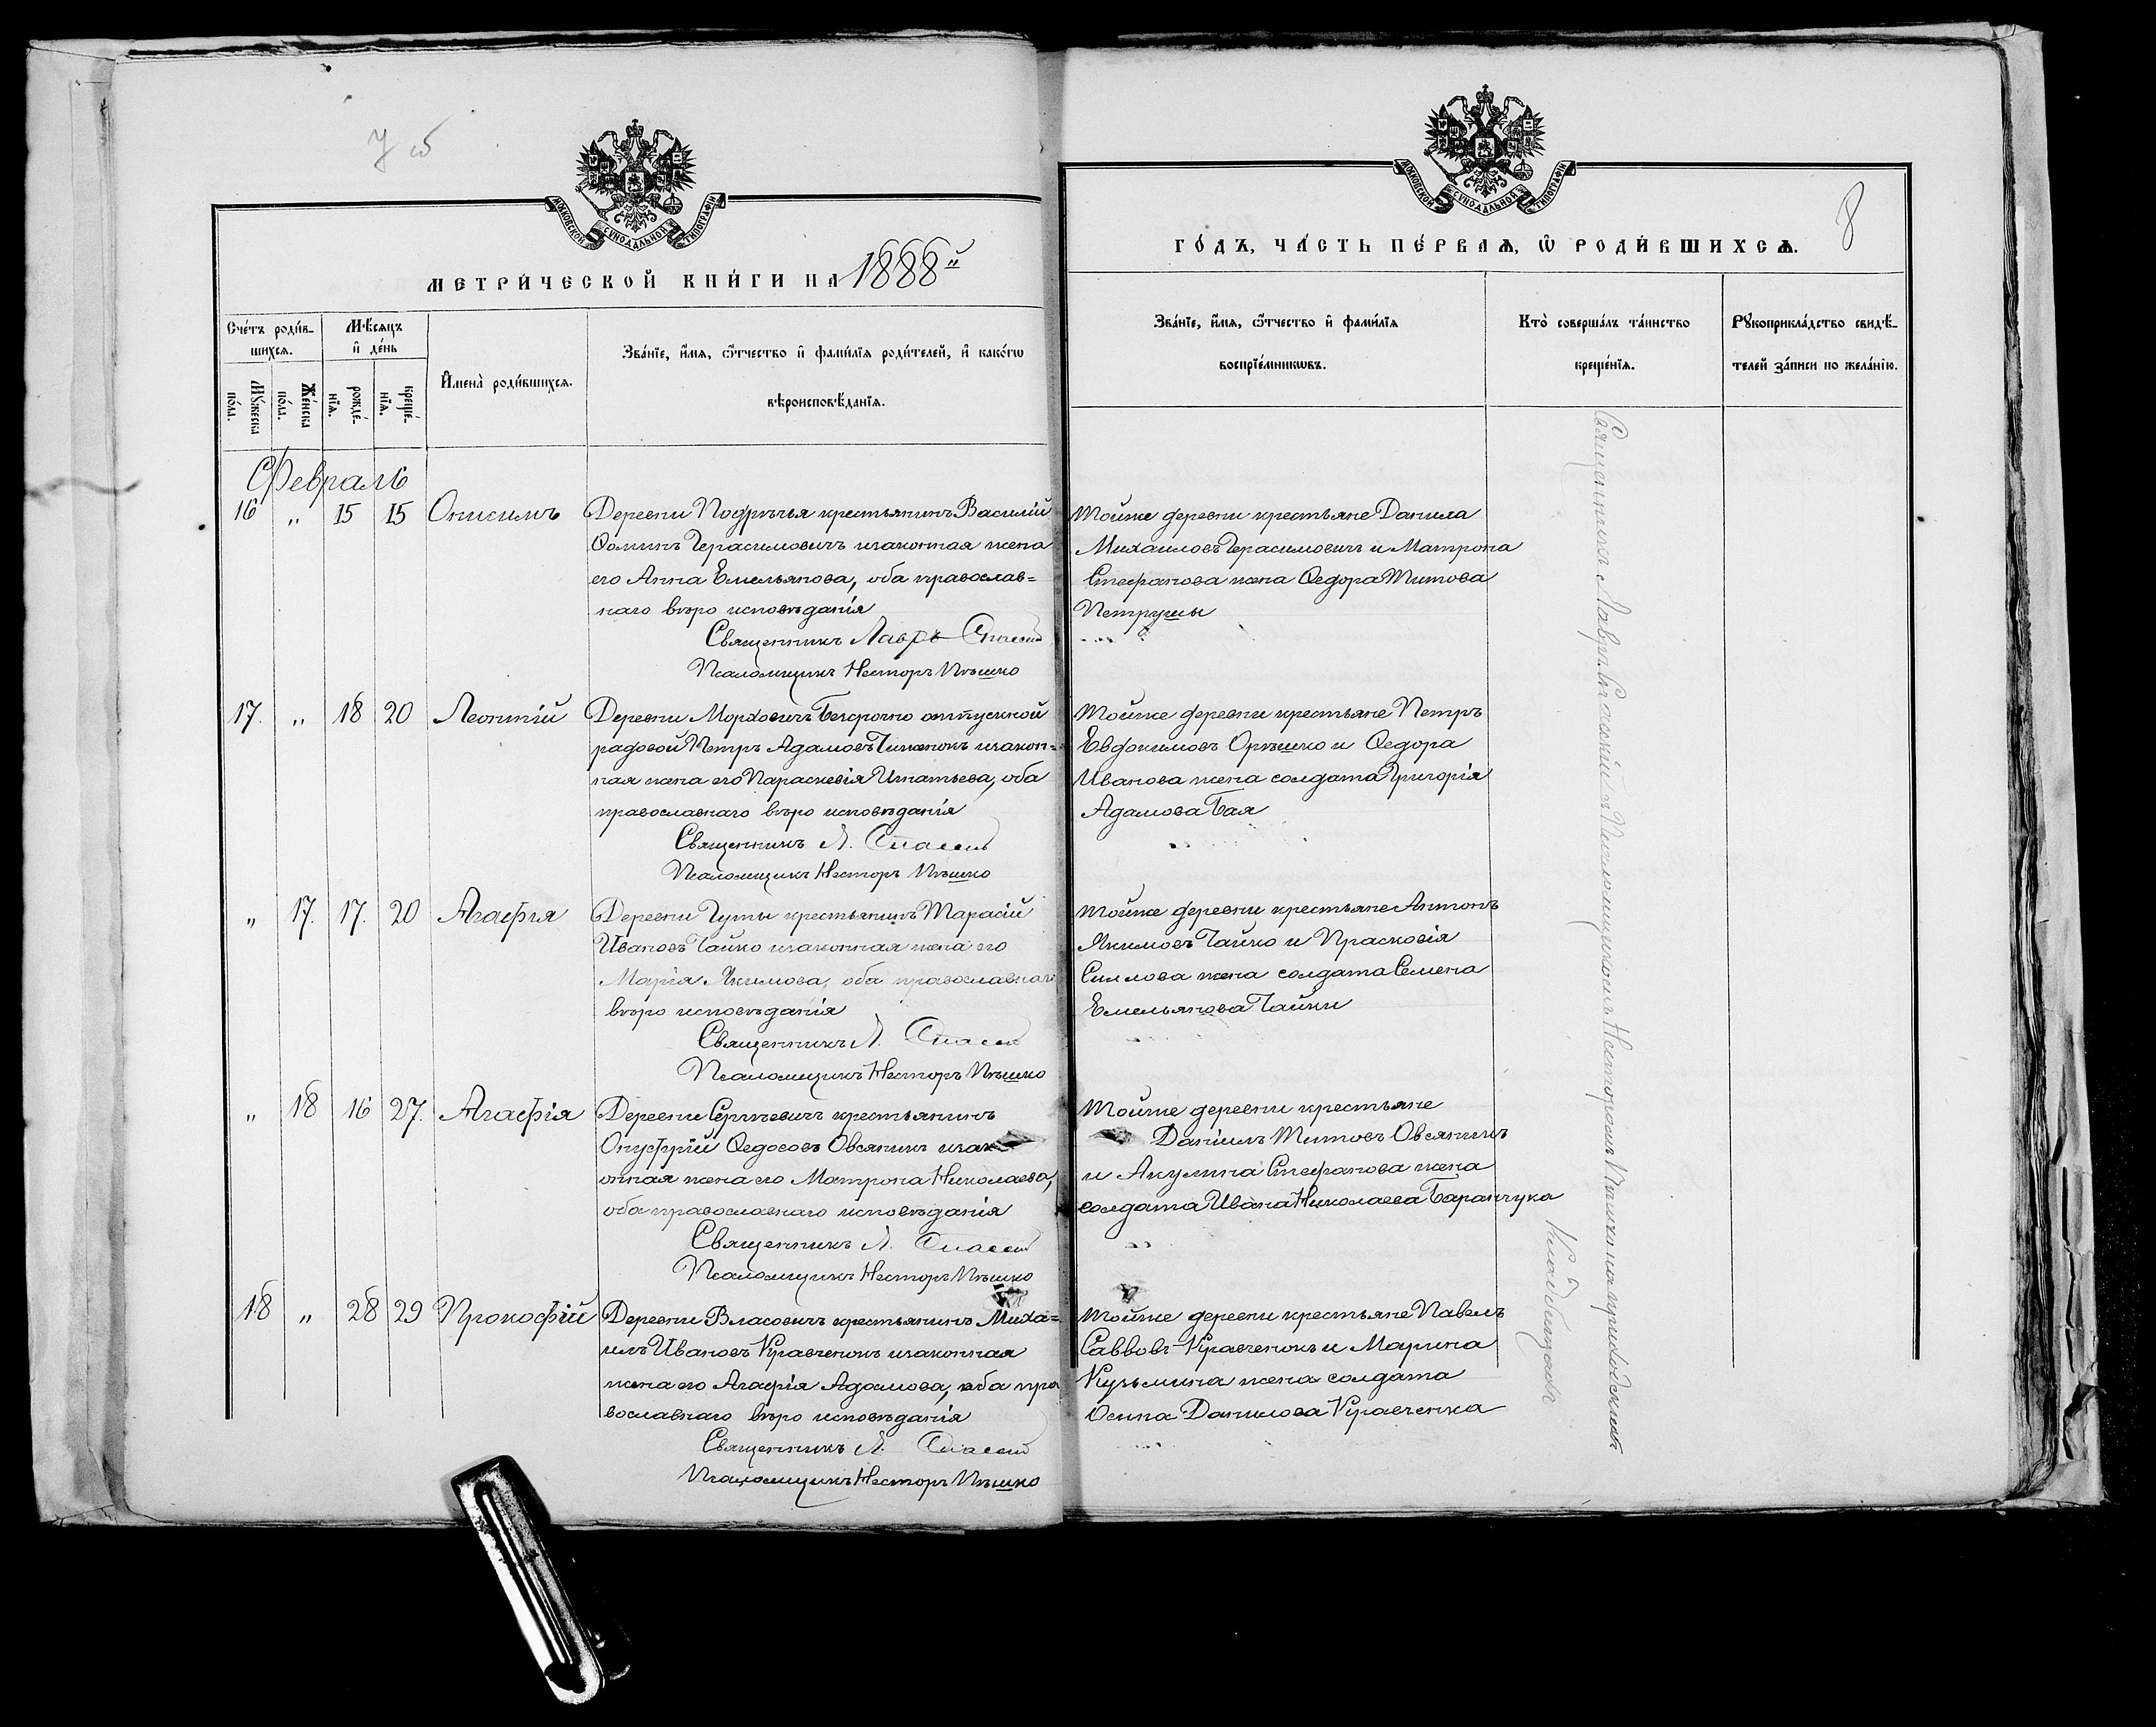 7 об
МОСКОВСКОЙ СѴНОДАЛЬНОЙ ТИПОГРАФІИ
МЕТРИ́ЧЕСКОЙ КНИ́ГИ НА 1888й
Сче́тъ роди́в-
шихся.
Мѣ́сяцъ
и҆ де́нь
Мꙋ́жеска
по́ла.
Же́нска
по́ла.
рожде́-
нїя.
креще́-
нїя.
И҆мена̀ роди́вшихся.
Зва́нїе, и҆́мя, ѻ҆́тчество и҆ фами́лїя роди́телей, и҆ како́гѡ
вѣроисповѣ́данїя.
Февраль
16 " 15 15 Онисимъ
Деревни Подрѣчья крестьянинъ Василій
Ѳоминъ Герасимовичъ изаконная жена
его Анна Емельянова, оба православ=
наго вѣро исповѣданія
Священникъ Лавръ Спасскій
Псаломщикъ Несторъ Пѣшко
17. " 18 20 Леонтій
Деревни Морховичъ Безсрочно отпускной
рядовой Петръ Адамовъ изакон=
ная жена его Параскевія Игнатьева, оба
православнаго вѣро исповѣданія
Священникъ Л. Спасскій
Псаломщикъ Несторъ Пѣшко
" 17. 17. 20 Агафія
Деревни Гуты крестьянинъ Тарасій
Ивановъ Чайко изаконная жена его
Марія Якимова, оба православнаго
вѣро исповѣданія
Священникъ Л. Спасскій
Псаломщикъ Несторъ Пѣшко
" 18 16 27. Агафія
Деревни Сергѣевичъ крестьянинъ
Онуфрій Ѳедосовъ Овсяникъ изак
онная жена его Матрона Николаева,
оба православнаго исповѣданія
Священникъ Л. Спасскій
Псаломщикъ Несторъ Пѣшко
18 " 28 29 Прокофій
Деревни Власовичъ крестьянинъ Миха=
илъ Ивановъ Кравченокъ изаконная
жена его Агафія Адамова, оба пра
вославнаго вѣро исповѣданія
Священникъ Л. Спасскій
Псаломщикъ Несторъ Пѣшко
МОСКОВСКОЙ СѴНОДАЛЬНОЙ ТИПОГРАФІИ
8
ГО́ДЪ, ЧА́СТЬ ПЕ́РВАѦ, Ѡ҆ РОДИ́ВШИХСѦ.
Зва́нїе, и҆́мя, ѻ҆́тчество и҆ фами́лїя
воспрїе́мникѡвъ.
Кто̀ соверша́лъ та́инство
креще́нїя.
Рꙋкоприкла́дство свидѣ́-
телей за́писи по жела́нїю.
Тойже деревни крестьяне Данила
Михаиловъ Герасимовичъ и Матрона
Стефанова жена Ѳедора Титова
Петруши
Тойже деревни крестьяне Петръ
Евдокимовъ Орѣшко и Ѳедора
Иванова жена солдата Григорія
Адамова Бая
Тойже деревни крестьяне Антонъ
Якимовъ Чайко и Прасковія
Сиилова жена солдата Семена
Емельянова Чайки
Тойже деревни крестьяне
Даніилъ Титовъ Овсяникъ
и Акулина Стефанова жена
солдата Ивана Николаева Баранчука
Тойже деревни крестьяне Павелъ
Саввовъ Кравченокъ и Марина
Кузьмина жена солдата
Осипа Данилова Кравченка
Священникъ Лавръ Спасскій съ Псаломщикомъ Несторомъ Пѣшко на приходскомъ
Кладбищѣ